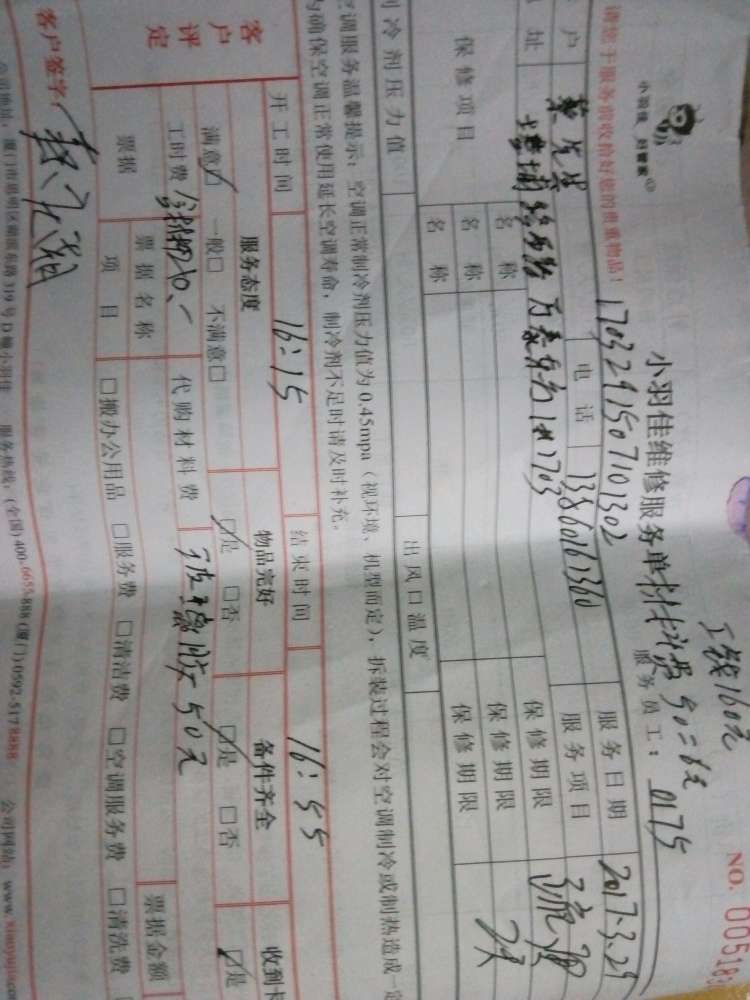 小羽佳 好管家
请您于服务前收拾好您的贵重物品!
工钱160元
NO. 005183
小羽佳维修服务单 材料费50
服务员工: 0175
1703291507101302
户 电话 13860161360 服务日期 2017.3.29
址 服务项目
保修项目 名称 保修期限
名称 保修期限
名称 保修期限
制冷剂压力值 出风口温度
空调服务温馨提示: 空调正常制冷剂压力值为0.45mpa (视环境、机型而定), 拆装过程会对空调制冷或制热造成一定
为确保空调正常使用延长空调寿命, 制冷剂不足时请及时补充。
开工时间 16:15 结束时间 16:55
客户评定 服务态度 物品完好 备件齐全 收到卡
满意☑ 一般□ 不满意□ ☑是 □否 ☑是 □否 ☑是
工时费 代购材料费 玻璃胶50元
票据 票据名称 票据金额
项目 □搬办公用品 □服务费 □清洁费 □空调服务费 □清洗费
客户签字:
公司地址: 厦门市思明区湖滨东路319号D幢小羽佳 服务热线: (全国)400-6655-888 (厦门)0592-5178888 公司网站: www.xiaoyujia.com